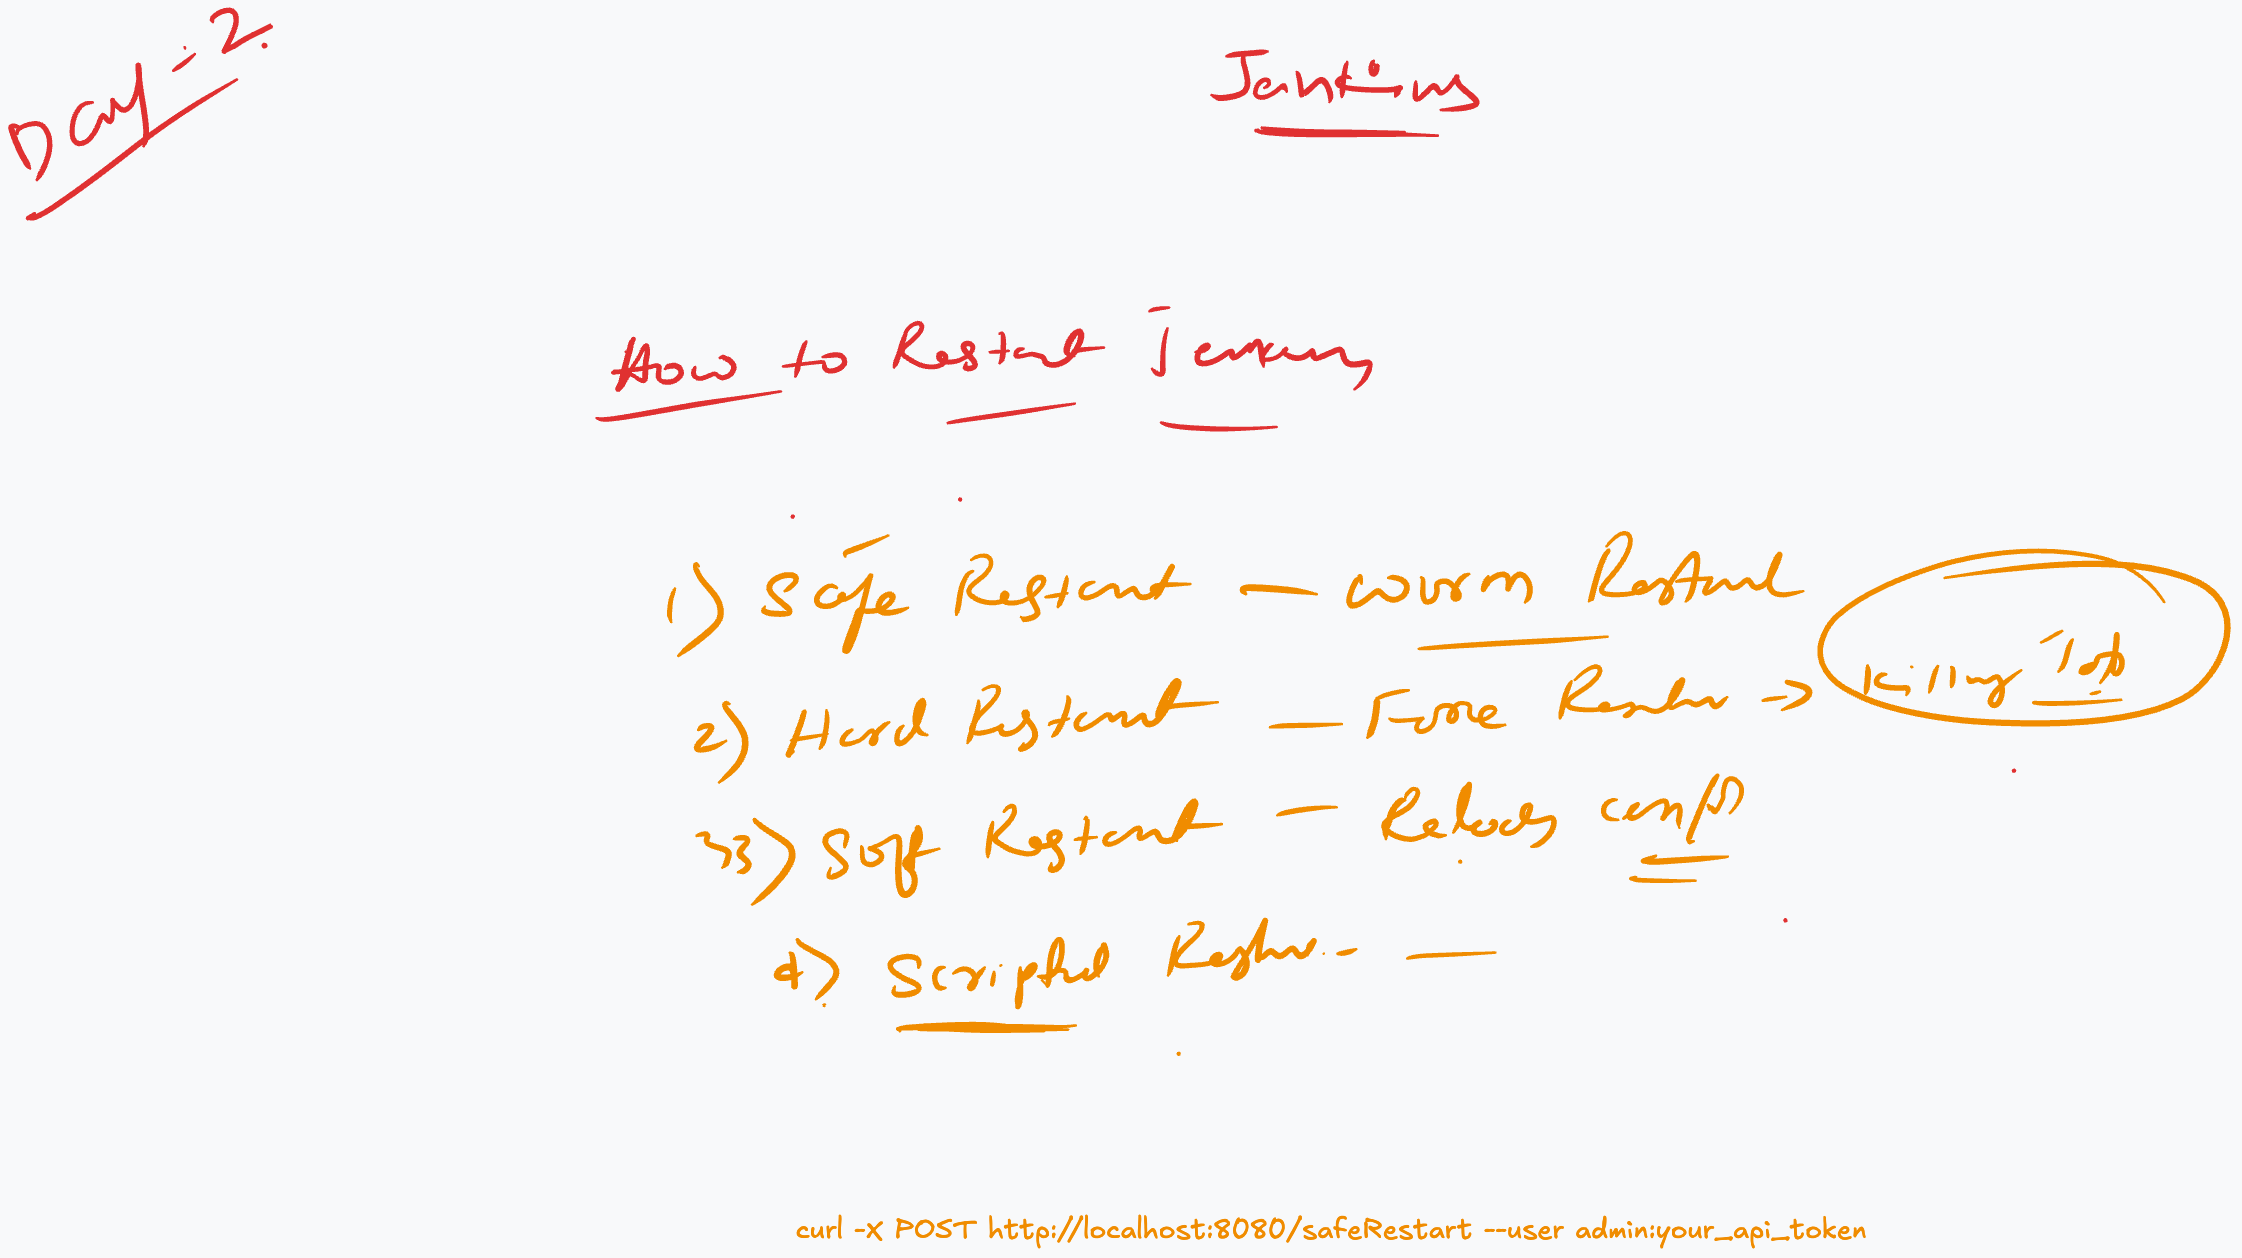 Day-2.
Jenkins
How to Restart Jenkins
1) Safe Restart — warm Restart
2) Hard Restart — Force Restart → killing Job
3) Soft Restart — Reloads config
4) Scripted Restart —
curl -X POST http://localhost:8080/safeRestart --user admin:your_api_token